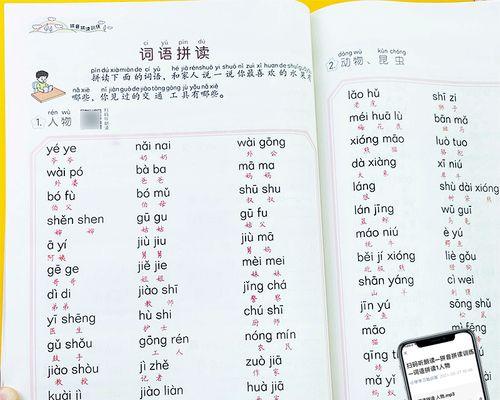 拼音拼读训练
cí yǔ pīn dú
词语拼读
pīn dú xià miàn de cí yǔ hé jiā rén shuō yi shuō nǐ zuì xǐ huan de shuǐ
拼读下面的词语，和家人说一说你最喜欢的水果有
nǎ xiē nǐ jiàn guò de jiāo tōng gōng jù yǒu nǎ xiē
哪些，你见过的交通工具有哪些。
rén wù
1. 人物
扫码听朗读
yé ye nǎi nai wài gōng
爷爷 奶奶 外公
wài pó bà ba mā ma
外婆 爸爸 妈妈
bó fù bó mǔ shū shu
伯父 伯母 叔叔
shěn shen gū gu gū fu
婶婶 姑姑 姑父
ā yí jiù jiu jiù mā
阿姨 舅舅 舅妈
gē ge jiě jie mèi mei
哥哥 姐姐 妹妹
dì di jiào shī jǐng chá
弟弟 教师 警察
yī shēng hù shi chú shī
医生 护士 厨师
gǔ shǒu gōng rén nóng mín
鼓手 工人 农民
jiào shòu jì zhě zuò jiā
教授 记者 作家
kuài jì jiào liàn huà jiā
dòng wù kūn chóng
2. 动物、昆虫
lǎo hǔ shī zi
老虎 狮子
méi huā lù bān mǎ
梅花鹿 斑马
xióng māo luò tuo
熊猫 骆驼
dà xiàng xī niú
大象 犀牛
láng shù dài xióng
狼
lán jīng wū guī
蓝鲸 乌龟
máo niú è yú
牦牛 鳄鱼
běi jí xióng liè gǒu
北极熊 猎狗
shān yáng cì wei
山羊 刺猬
jīn yú sōng shǔ
金鱼 松鼠
māo mì fēng
猫 蜜蜂
qīng
mǎ yǐ
扫码听朗读—拼音拼读训练
—词语拼读1人物